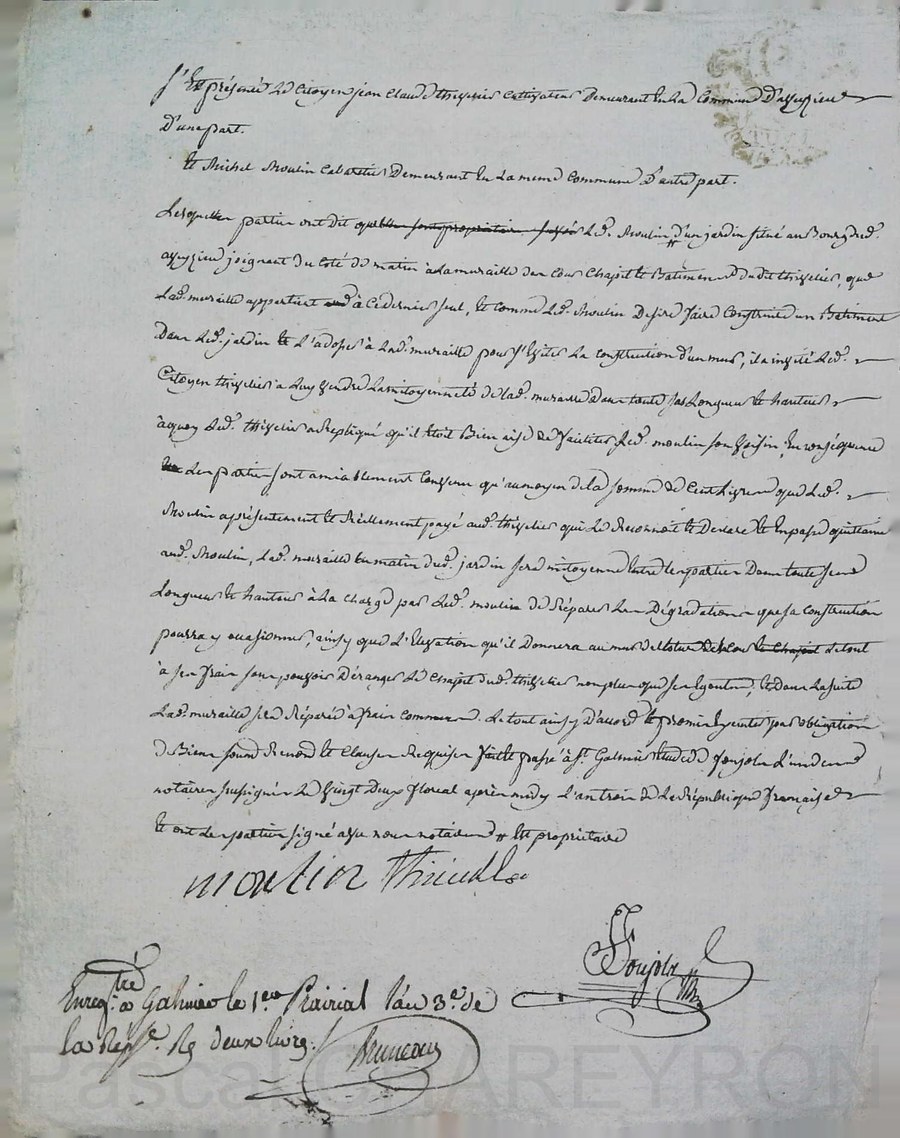 S'est présenté le Citoyen jean Claude thivelier Cultivateur Demeurant en La Commune D'aveyzieu
D'une part.
Et Michel Moulin Cabaretier Demeurant en La meme Commune D'autre part.
Lesquelles parties ont dit que Led. Moulin # d'un jardin situé au Bourg dud.
aveyzieu joignant du Coté de matin à La muraille des Cour Chapit et Batiment dudit thivelier, que
Lad. muraille appartient à Ce dernier seul, et comme Led. Moulin Desire faire Construire un Batiment
Dans Led. jardin et L'adosser à Lad. muraille pour s'Eviter La construction d'un mur, il a invité Led.
Citoyen thivelier a Luy vendre La mitoyenneté de Lad. muraille Dans toute sa Longueur et hauteur
à quoy Led. thivelier a Repliqué qu'il étoit Bien aise de faciliter Led. moulin son voisin, En conséquence
Les parties sont amiablement Convenu qu'au moyen de la somme de Cent Livres que Led.
Moulin a présentement et Réellement payé aud. thivelier qui Le Reconnoit Le Declare et En passe quittance
aud. Moulin, Lad. muraille En matin dud. jardin sera mitoyenne Entre les parties Dans toute sa
Longueur et hauteur à La Charge par Led. moulin de Réparer Les Dégradations que sa construction
pourra y occasionner, ainsy que L'Elevation qu'il Donnera au mur de le tout
à ses frais sans pouvoir Déranger Le Chapit dud. thivelier non plus que ses Egouts, Et dans La suite
Lad. muraille sera Réparée à frais communs. Le tout ainsy D'accord et promis par obligation
de Biens soumis Renonc. et Clauses Requises fait et passé à St. Galmier Etude de foujols L'un des
notaires soussigné Le vingt Deux floreal après midy L'an trois de La République française
Et ont Les parties signé avec nous notaires # Est propriétaire
moulin thivellier
foujols
Enregtré. a Galmier le 1er Prairial l'an 3e. de
la Répe. Rç deux livres.
Bruneau
Pascal CHAREYRON